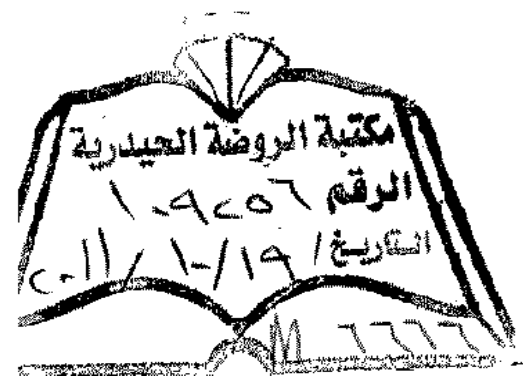 مكتبة الروضة الحيدرية
الرقم ١٠٩٢٥٦
التاريخ / ١٩ / ١٠ / ٢٠١١
M ٦٦٦٦